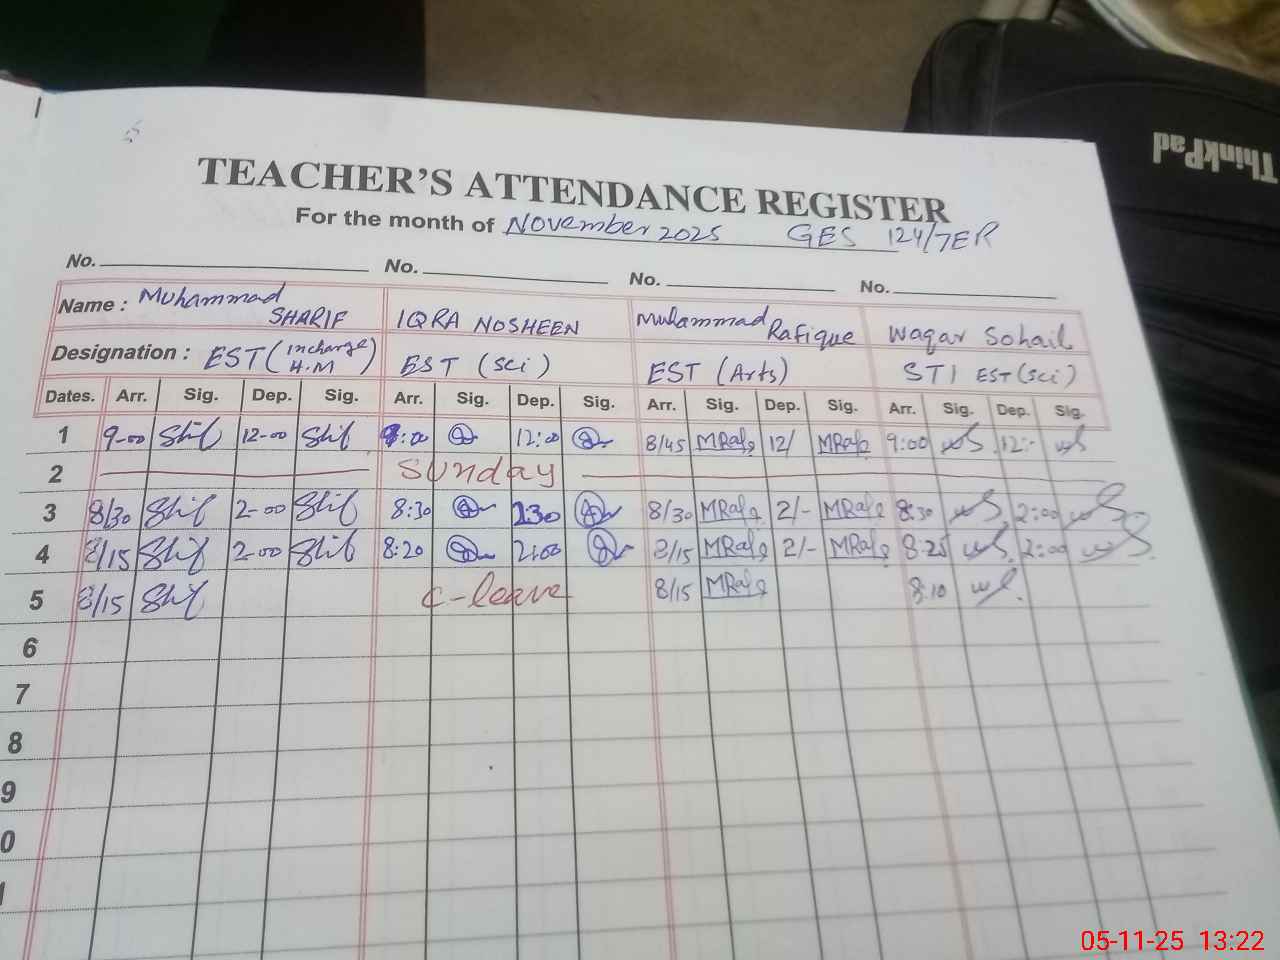 ThinkPad
TEACHER'S ATTENDANCE REGISTER
For the month of November 2025 GES 124/7ER
No. No. No. No.
Name : Muhammad SHARIF IQRA NOSHEEN Muhammad Rafique Waqar Sohail
Designation : EST (Incharge H.M) EST (sci) EST (Arts) STI EST (sci)
Dates. Arr. Sig. Dep. Sig. Arr. Sig. Dep. Sig. Arr. Sig. Dep. Sig. Arr. Sig. Dep. Sig.
1 9-00 12-00 9:00 12:00 8/45 MRafq 12/ MRafq 9:00 12:-
2 Sunday
3 8/30 2-00 8:30 1:30 8/30 MRafq 2/- MRafq 8:30 2:00
4 8/15 2-00 8:20 2:00 8/15 MRafq 2/- MRafq 8:25 2:00
5 8/15 C-leave 8/15 MRafq 8:10
6
7
8
9
0
05-11-25 13:22